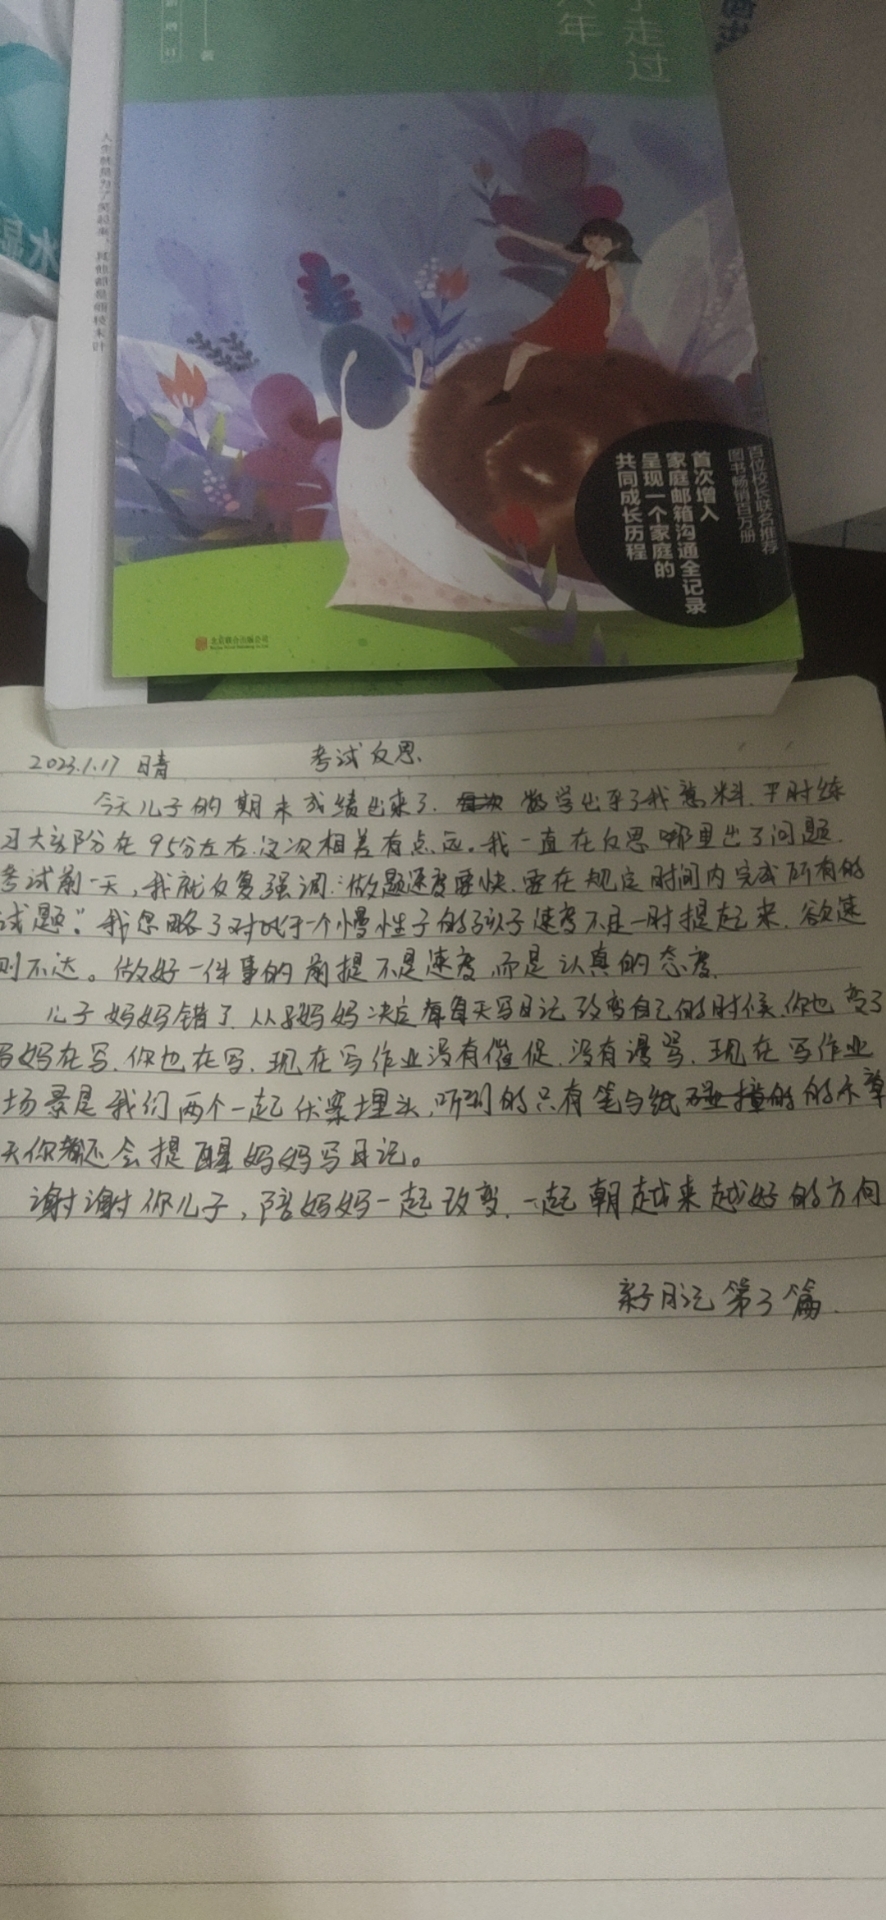 走过
六年
著
首次增入
家庭邮箱沟通全记录
呈现一个家庭的
共同成长历程
百位校长联名推荐
图书畅销百万册
北京联合出版公司
2023.1.17 晴 考试反思.
今天儿子的期末成绩出来了. 数学出乎了我意料. 平时练
习大部分在95分左右.这次相差有点远。我一直在反思哪里出了问题.
考试前一天,我就反复强调:"做题速度要快.要在规定时间内完成所有的
试题"。我忽略了对于一个慢性子的孩子速度不是一时提起来.欲速
则不达。做好一件事的前提不是速度,而是认真的态度.
儿子妈妈错了.从妈妈决定每天写日记改变自己的时候.你也变了
妈妈在写.你也在写.现在写作业没有催促.没有谩骂.现在写作业
场景是我们两个一起伏案埋头,听到的只有笔与纸碰撞的
天你都还会提醒妈妈写日记。
谢谢你儿子,陪妈妈一起改变.一起朝越来越好的方向
亲子日记第3篇.